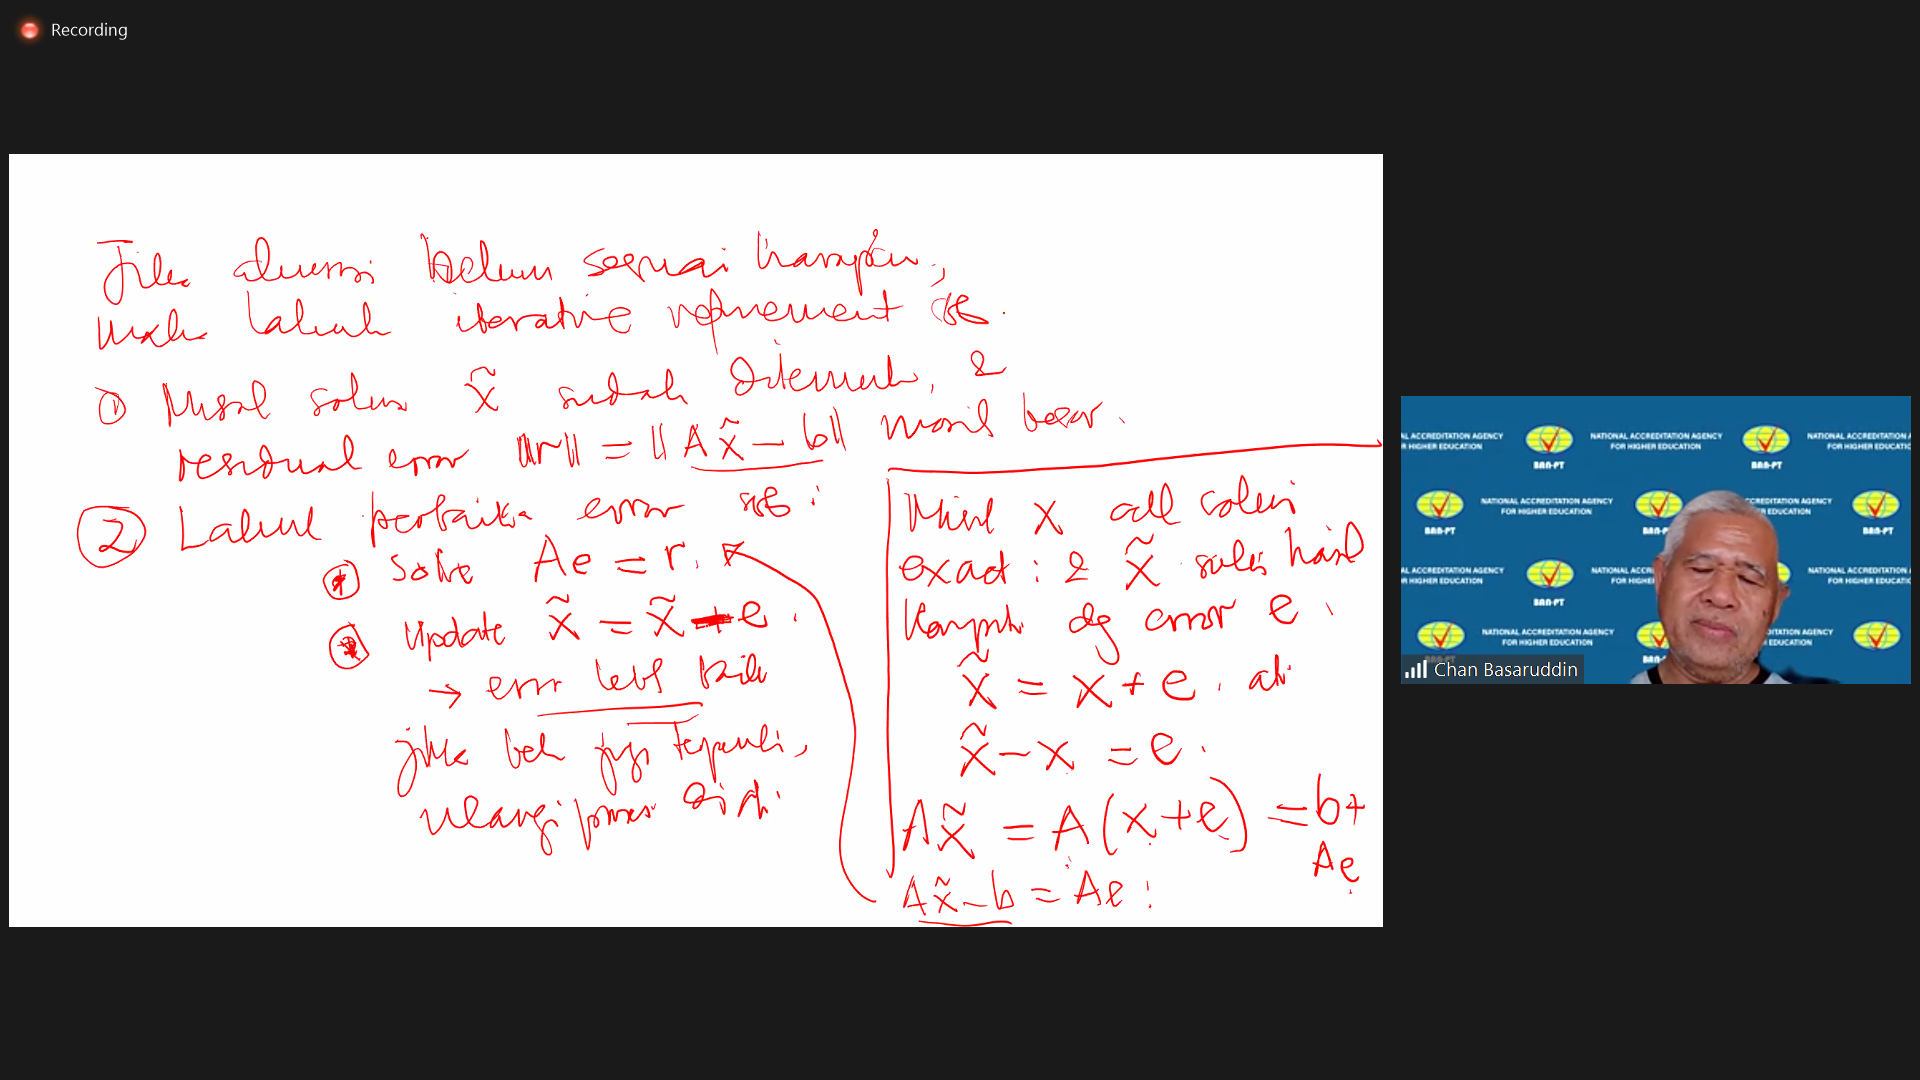 Recording
Jika akurasi belum sesuai harapan,
maka lakuk iterative refinement sb.
① Misal solusi x̃ sudah ditemuk, &
residual error ‖r‖ = ‖Ax̃ − b‖ masih besar.
② Lakuk perbaika error sb :
Solve Ae = r.
Update x̃ = x̃ − e.
→ error lebih baik
jika bel juga terpenuhi,
ulangi proses
Misal x adl solusi
exact : & x̃ solusi hasil
Komput dg error e.
x̃ = x + e. at
x̃ − x = e.
Ax̃ = A(x + e) = b +
Ae
Ax̃ − b = Ae
NATIONAL ACCREDITATION AGENCY
FOR HIGHER EDUCATION
BAN-PT
Chan Basaruddin